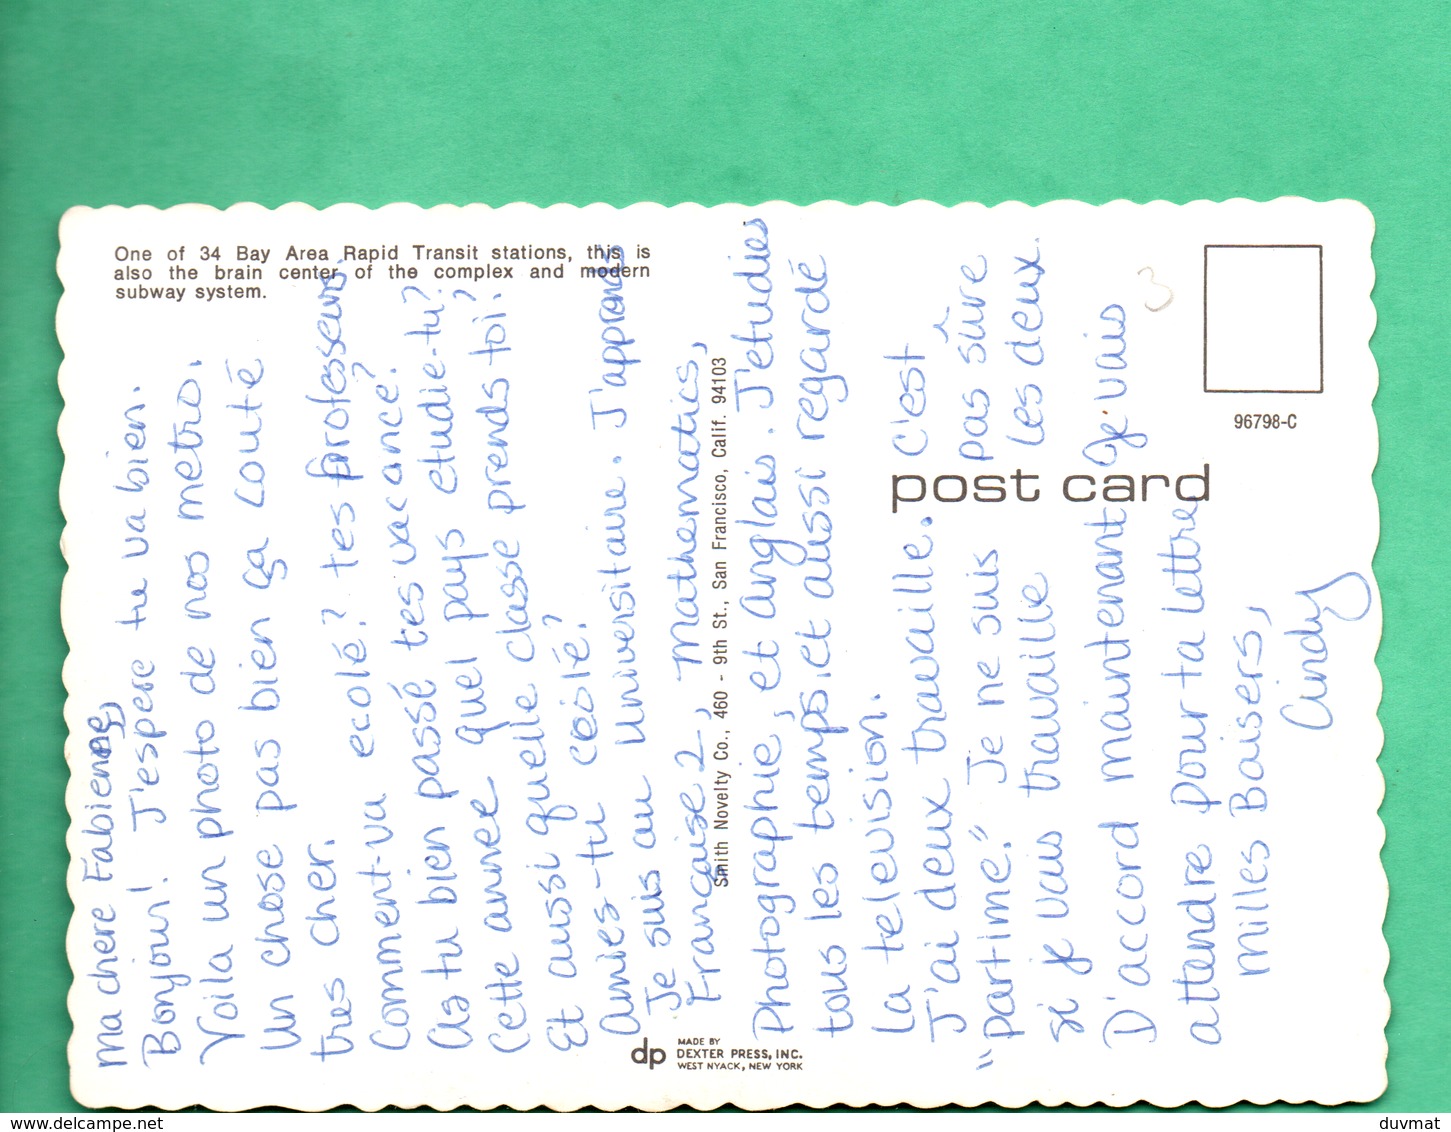 One of 34 Bay Area Rapid Transit stations, this is
also the brain center of the complex and modern
subway system.
ma chere Fabienne,
Bonjour! J'espere tu va bien.
Voila un photo de nos metro.
un chose pas bien ça couté
tres cher.
Comment-va ecolé? tes professeurs.
As tu bien passé tes vacance?
Cette annee quel pays etudie-tu?
Et aussi quelle classe prends toi?
Amies-tu ceolé?
Je suis au Universitaire. J'apprends
Française 2, Mathematics,
Photographie, et Anglais. J'etudies
tous les temps. et aussi regardé
la television.
J'ai deux travaille. C'est
"partime." Je ne suis pas sûre
si je vais travaille les deux.
D'accord maintenant Je vais
attendre pour ta lettre
Milles Baisers,
Cindy
Smith Novelty Co., 460 - 9th St., San Francisco, Calif. 94103
post card
96798-C
3
dp
MADE BY
DEXTER PRESS, INC.
WEST NYACK, NEW YORK
www.delcampe.net
duvmat